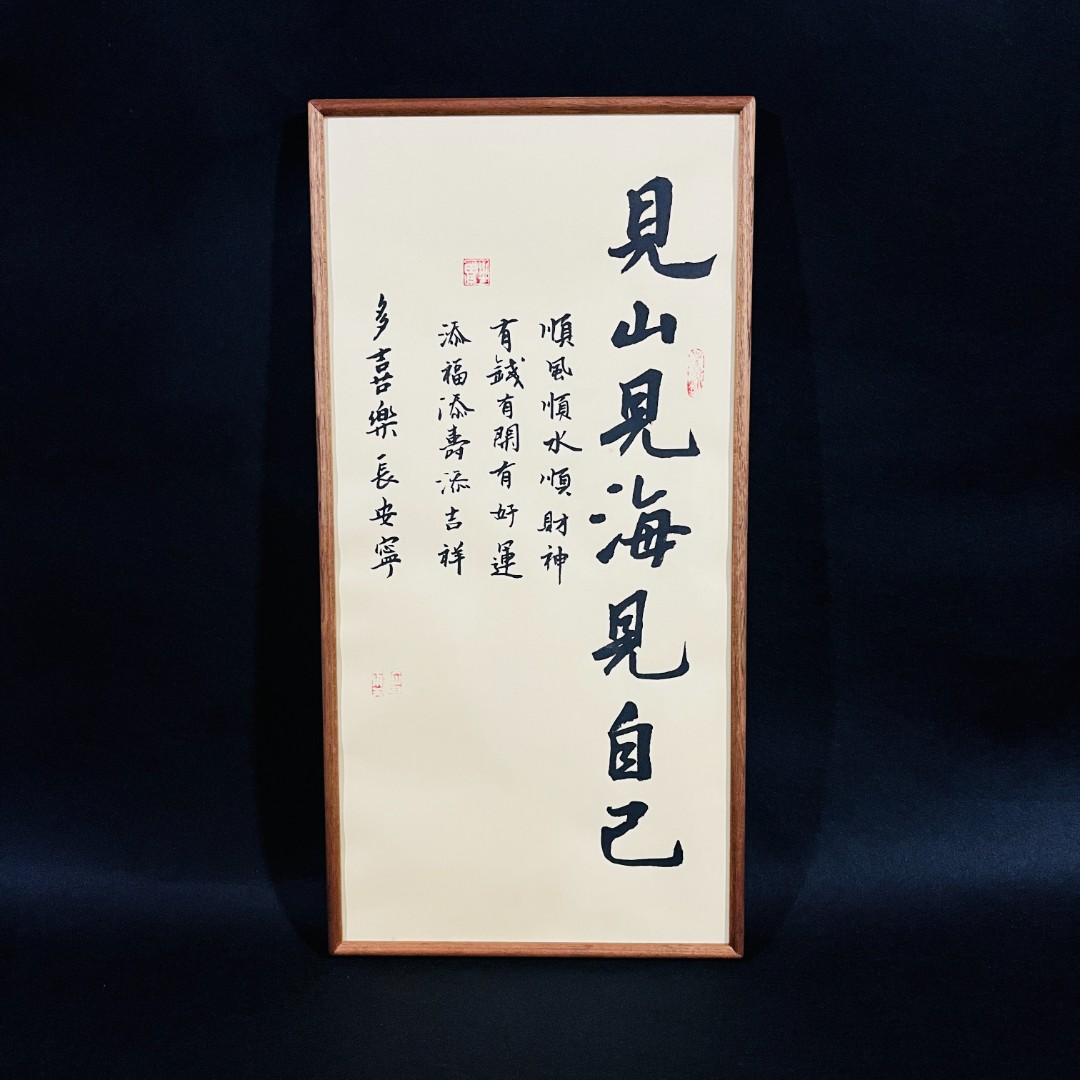 見山見海見自己
順風順水順財神
有錢有閑有好運
添福添壽添吉祥
多喜樂長安寧